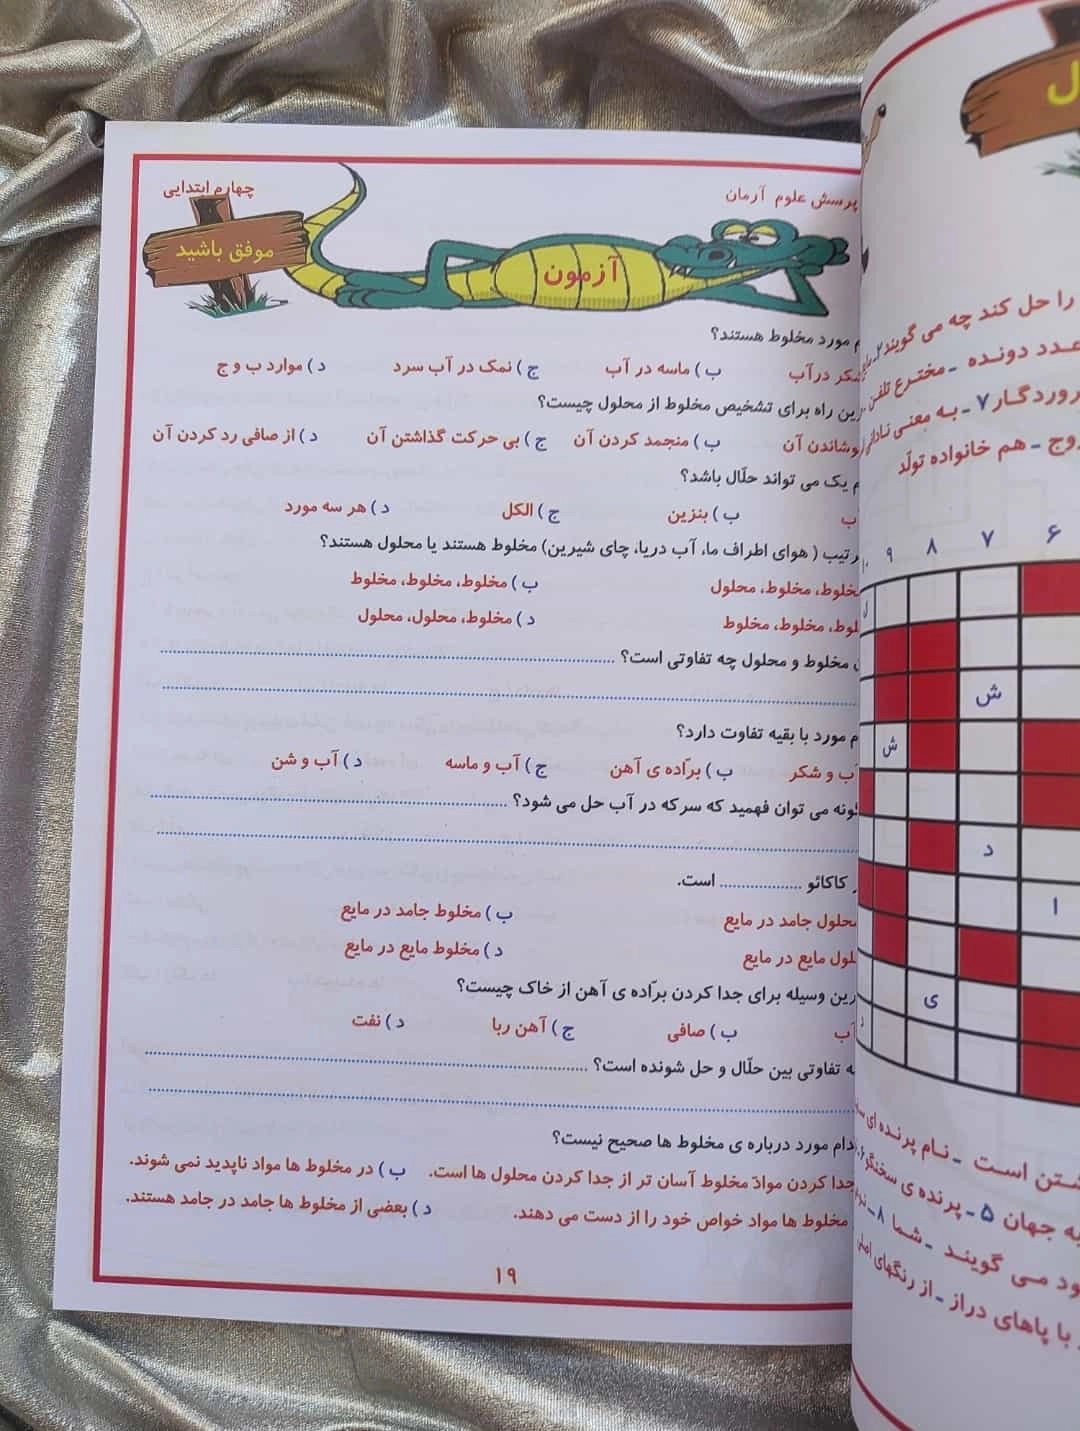 پرسش علوم آرمان
چهارم ابتدایی
موفق باشید
آزمون
مورد مخلوط هستند؟
درآب ب ) ماسه در آب ج ) نمک در آب سرد د ) موارد ب و ج
راه برای تشخیص مخلوط از محلول چیست؟
آن ب ) منجمد کردن آن ج ) بی حرکت گذاشتن آن د ) از صافی رد کردن آن
یک می تواند حلّال باشد؟
ب ) بنزین ج ) الکل د ) هر سه مورد
( هوای اطراف ما، آب دریا، چای شیرین) مخلوط هستند یا محلول هستند؟
مخلوط، محلول ب ) مخلوط، مخلوط، مخلوط
مخلوط، مخلوط د ) مخلوط، محلول، محلول
مخلوط و محلول چه تفاوتی است؟
مورد با بقیه تفاوت دارد؟
و شکر ب ) برّاده ی آهن ج ) آب و ماسه د ) آب و شن
می توان فهمید که سرکه در آب حل می شود؟
کاکائو .................. است.
محلول جامد در مایع ب ) مخلوط جامد در مایع
مایع در مایع د ) مخلوط مایع در مایع
وسیله برای جدا کردن برّاده ی آهن از خاک چیست؟
آب ب ) صافی ج ) آهن ربا د ) نفت
تفاوتی بین حلّال و حل شونده است؟
مورد درباره ی مخلوط ها صحیح نیست؟
جدا کردن موادّ مخلوط آسان تر از جدا کردن محلول ها است. ب ) در مخلوط ها مواد ناپدید نمی شوند.
مخلوط ها مواد خواص خود را از دست می دهند. د ) بعضی از مخلوط ها جامد در جامد هستند.
۱۹
ل
را حل کند چه می گویند
عدد دونده - مخترع تلفن
۷ - به معنی
- هم خانواده تولّد
۶ ۷ ۸ ۹
ش
ش
د
ا
ی
است - نام پرنده ای
به جهان ۵ - پرنده ی سخنگو
می گویند - شما ۸
با پاهای دراز - از رنگهای